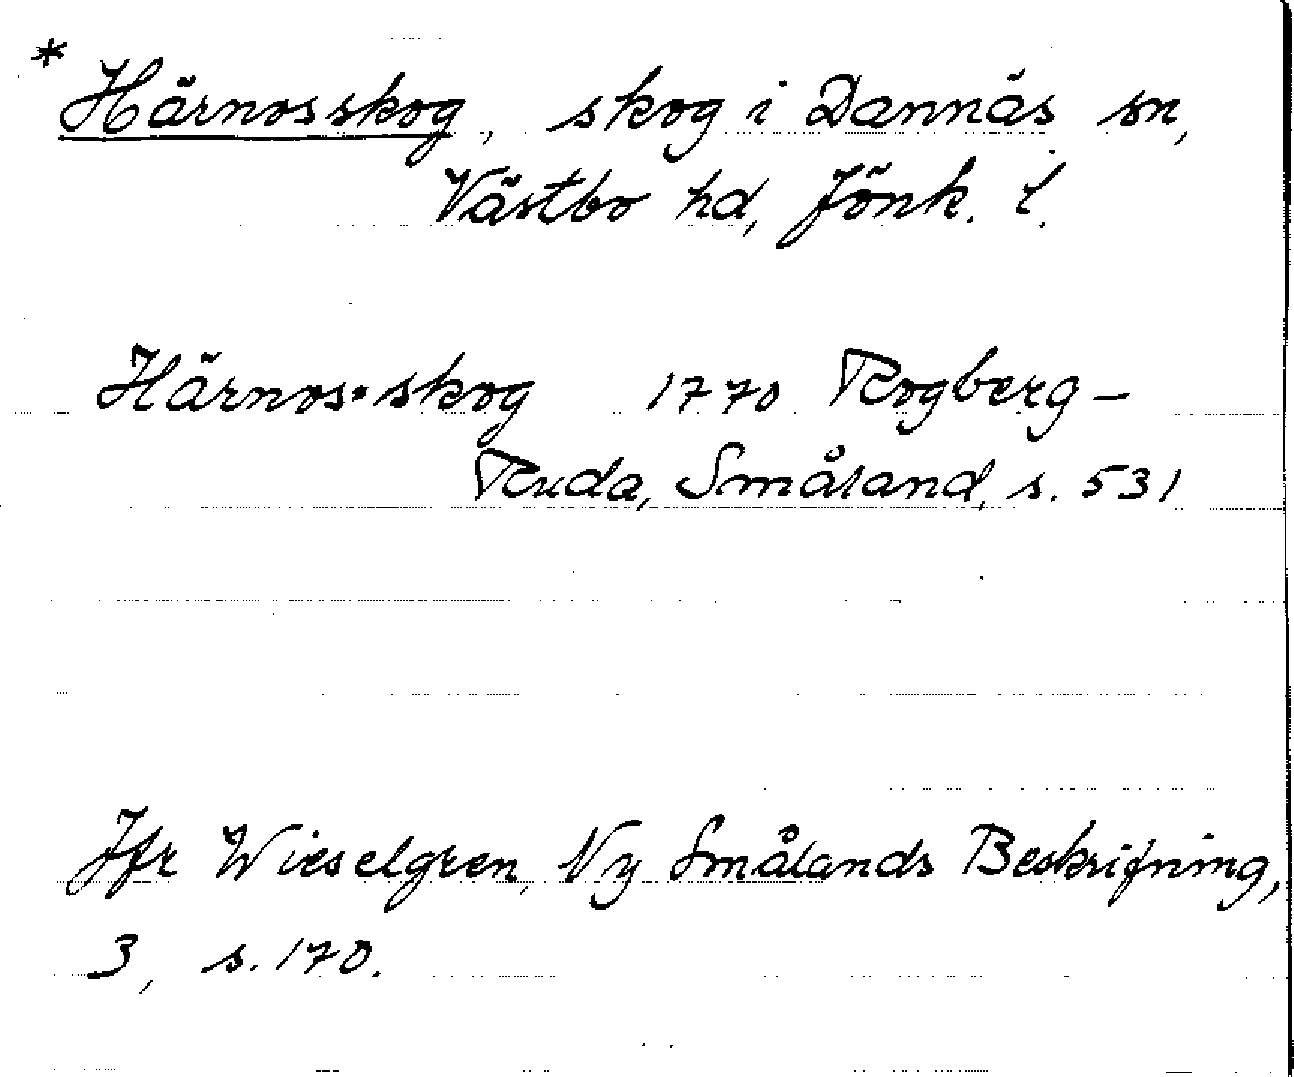 * Härnosskog, skog i Dannäs sn,
Västbo hd, Jönk. l.
Härnos-skog 1770 Rogberg-
Ruda, Småland, s. 531
Jfr Wieselgren, Ny Smålands Beskrifning,
3, s. 170.